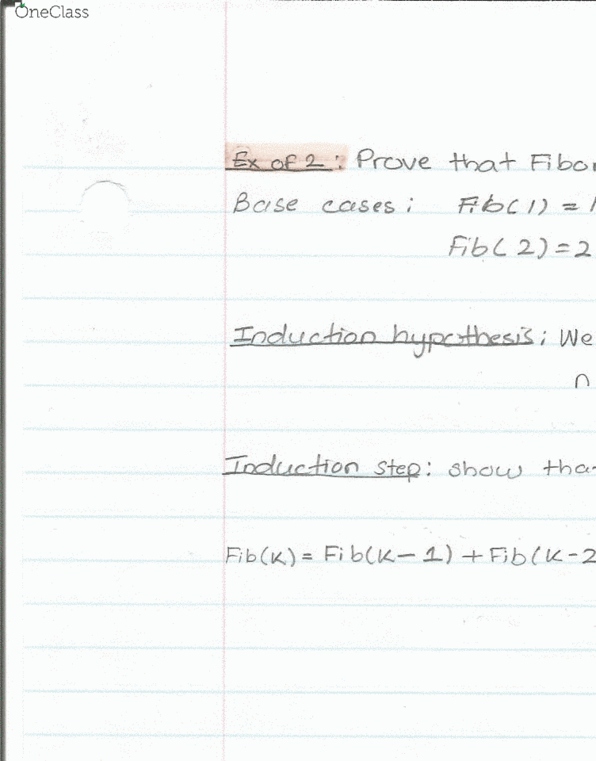 OneClass
Ex of 2: Prove that Fibo
Base cases: Fib(1) = 1
Fib(2) = 2
Induction hypothesis: We
n
Induction step: show tha
Fib(K) = Fib(K-1) + Fib(K-2